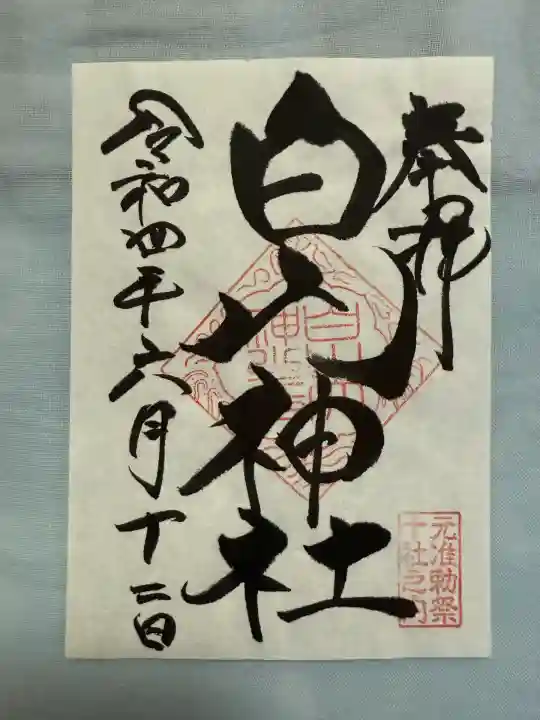 奉拝
白山神社
白山
神社
元准勅祭
十社之内
令和四年六月十二日